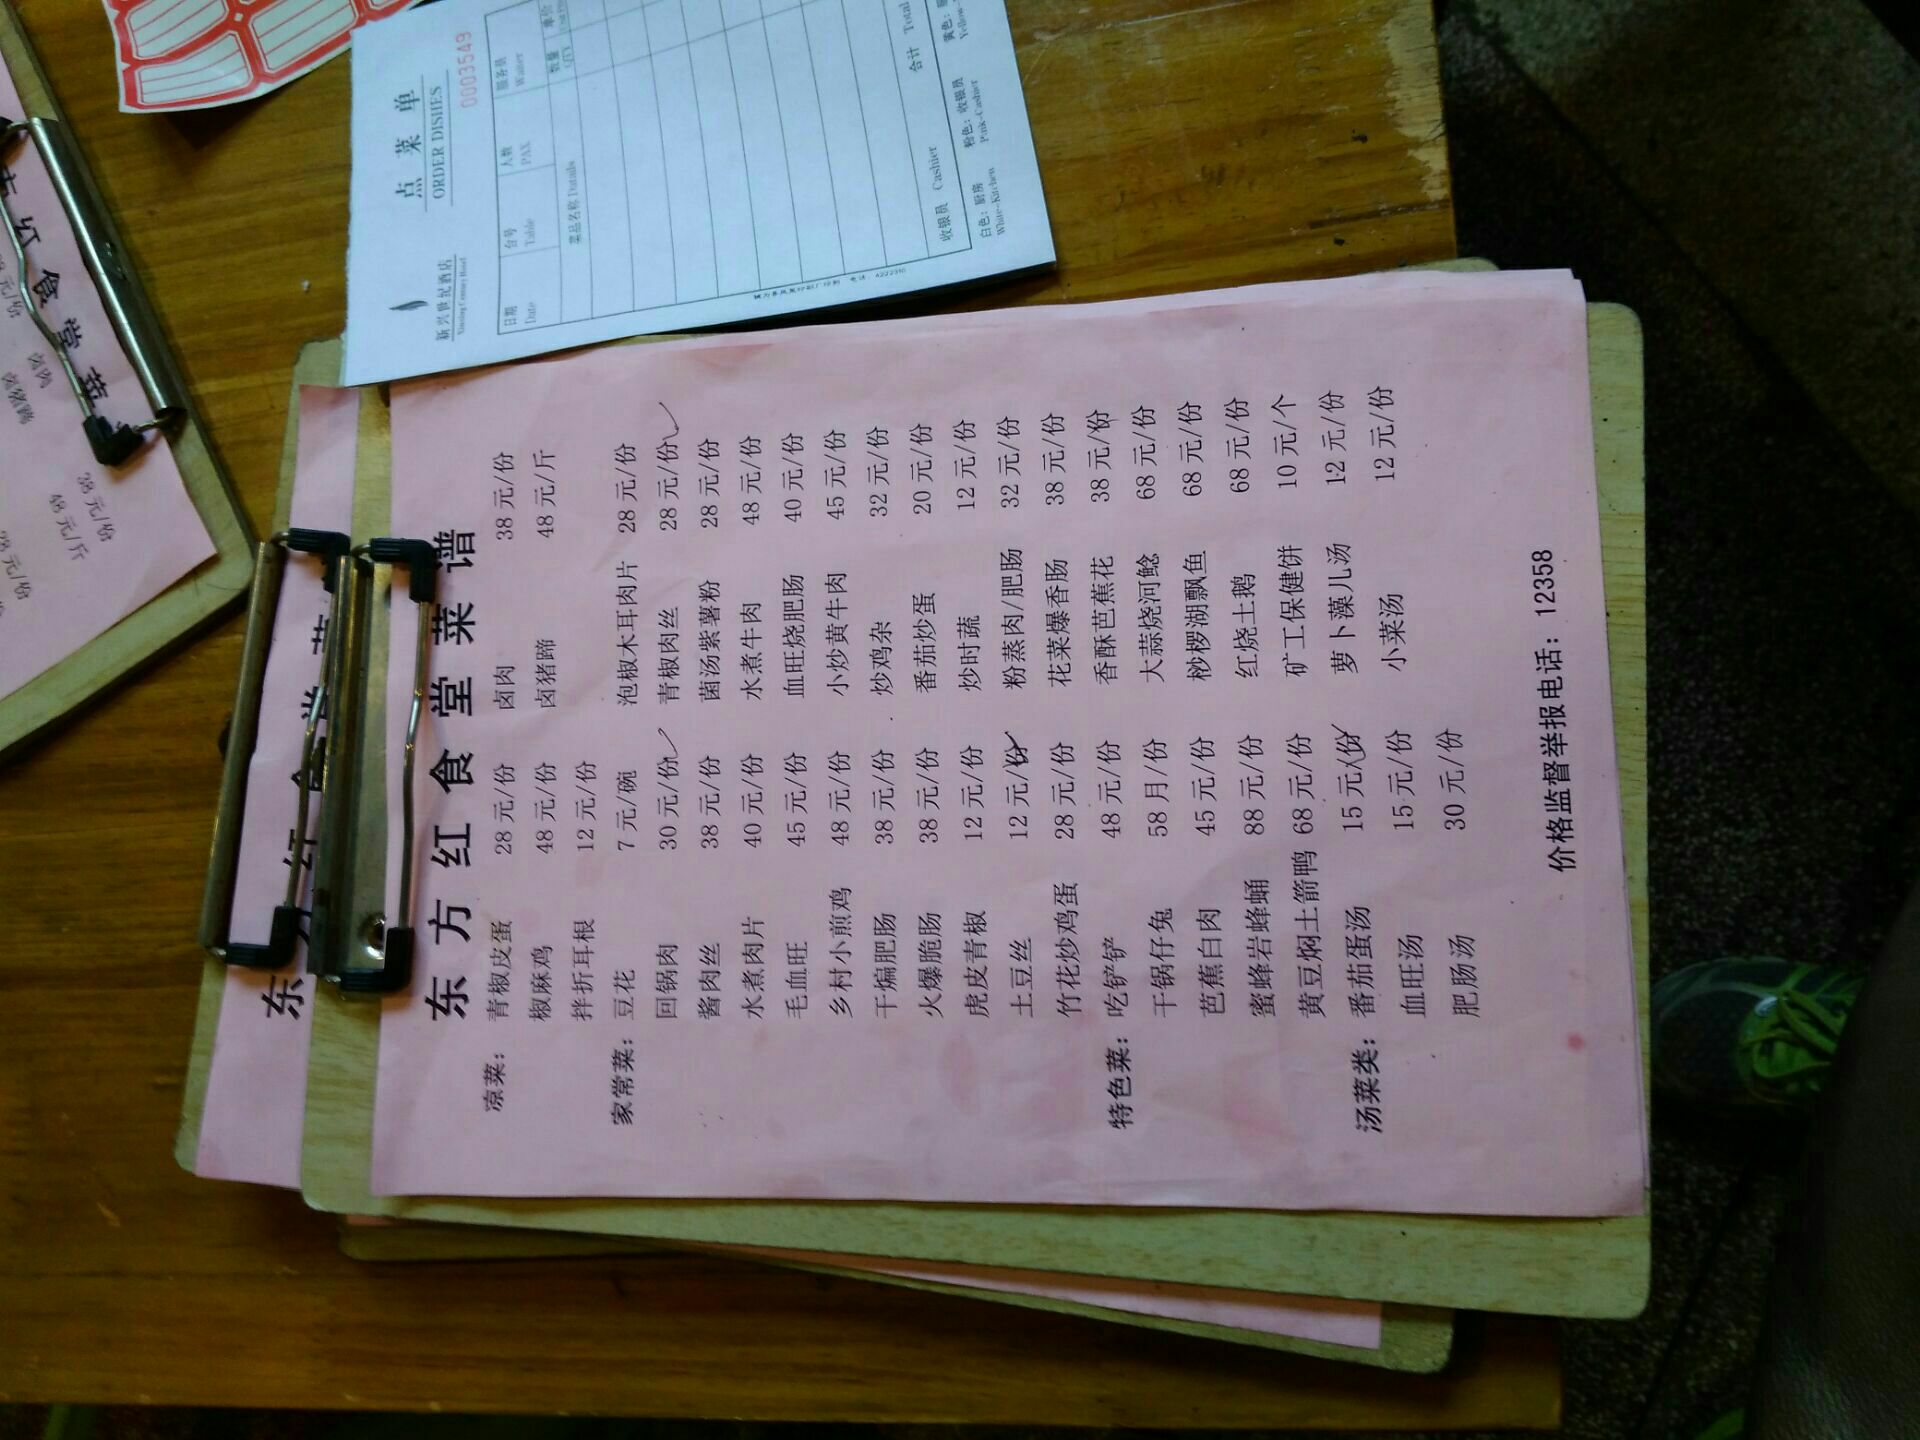 东方红食堂菜谱
凉菜： 青椒皮蛋 28元/份 卤肉 38元/份
椒麻鸡 48元/份 卤猪蹄 48元/斤
拌折耳根 12元/份
家常菜： 豆花 7元/碗 泡椒木耳肉片 28元/份
回锅肉 30元/份 青椒肉丝 28元/份
酱肉丝 38元/份 菌汤紫薯粉 28元/份
水煮肉片 40元/份 水煮牛肉 48元/份
毛血旺 45元/份 血旺烧肥肠 40元/份
乡村小煎鸡 48元/份 小炒黄牛肉 45元/份
干煸肥肠 38元/份 炒鸡杂 32元/份
火爆脆肠 38元/份 番茄炒蛋 20元/份
虎皮青椒 12元/份 炒时蔬 12元/份
土豆丝 12元/份 粉蒸肉/肥肠 32元/份
竹花炒鸡蛋 28元/份 花菜爆香肠 38元/份
特色菜： 吃铲铲 48元/份 香酥芭蕉花 38元/份
干锅仔兔 58月/份 大蒜烧河鲶 68元/份
芭蕉白肉 45元/份 桫椤湖飘鱼 68元/份
蜜蜂岩蜂蛹 88元/份 红烧土鹅 68元/份
黄豆焖土箭鸭 68元/份 矿工保健饼 10元/个
汤菜类： 番茄蛋汤 15元/份 萝卜藻儿汤 12元/份
血旺汤 15元/份 小菜汤 12元/份
肥肠汤 30元/份
价格监督举报电话：12358
新兴世纪酒店
Xinxing Century Hotel
点菜单
ORDER DISHES
0003549
日期 台号 人数 服务员
Date Table PAX Waiter
菜品名称 Details 数量 单价
QTY
收银员 Cashier 合计 Total
白色：厨房 粉色：收银员 黄色：
White-Kitchen Pink-Cashier Yellow
东
红食堂菜
卤肉 38元/份
卤猪蹄 48元/斤
28元/份